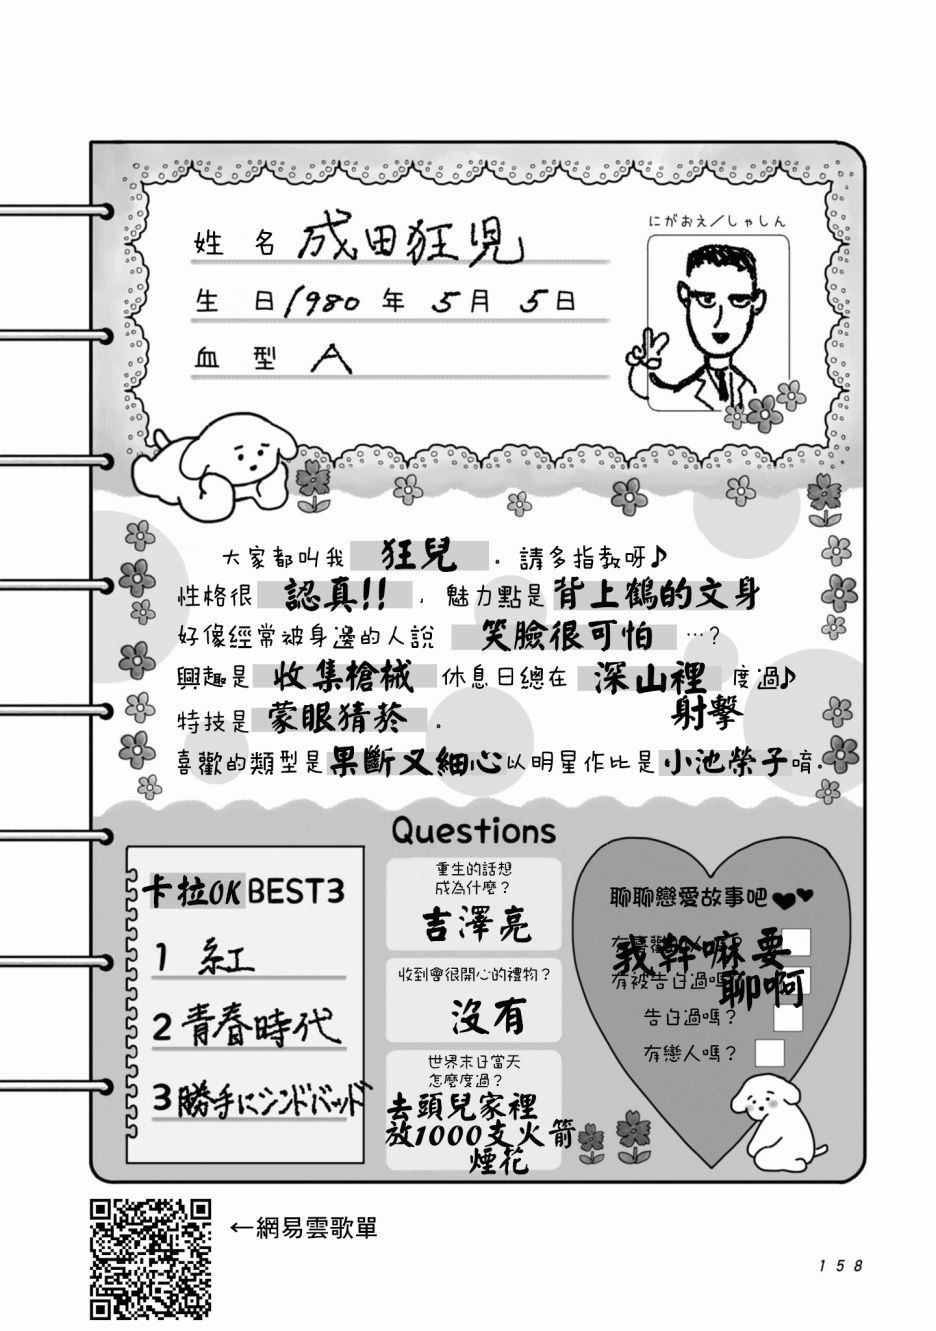 姓 名 成田狂児
にがおえ／しゃしん
生 日 1980 年 5 月 5 日
血 型 A
大家都叫我 狂兒 。請多指教呀♪
性格很 認真!! ，魅力點是 背上鶴的文身
好像經常被身邊的人說 笑臉很可怕 …？
興趣是 收集槍械 休息日總在 深山裡 度過♪
射擊
特技是 蒙眼猜菸 。
喜歡的類型是 果斷又細心 以明星作比是 小池榮子 唷。
Questions
卡拉OK BEST3
1 紅
2 青春時代
3 勝手にシンドバッド
重生的話想
成為什麼？
吉澤亮
收到會很開心的禮物？
沒有
世界末日當天
怎麼度過？
去頭兒家裡
放1000支火箭
煙花
聊聊戀愛故事吧♥♥
我幹嘛要
聊啊
有被告白過嗎？
告白過嗎？
有戀人嗎？
←網易雲歌單
158